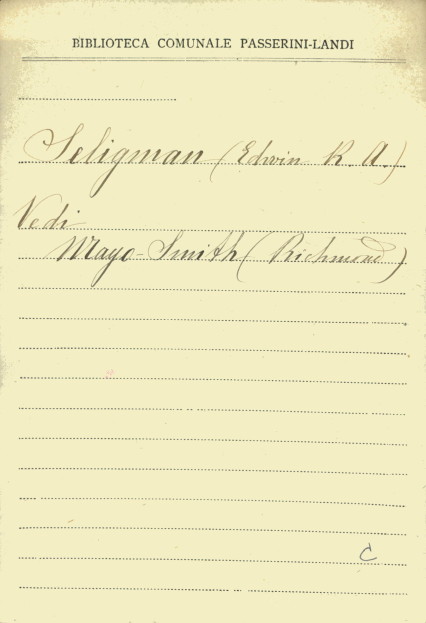 BIBLIOTECA COMUNALE PASSERINI-LANDI
Seligman (Edwin R. A.)
Vedi
Mayo-Smith (Richmond)
C